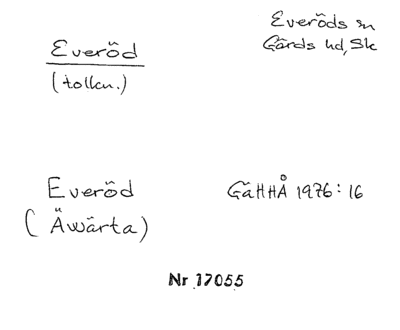 Everöds sn
Everöd
Gärds hd, Sk
(tolkn.)
Everöd
GäHHÅ 1976:16
(Äwärta)
Nr 17055